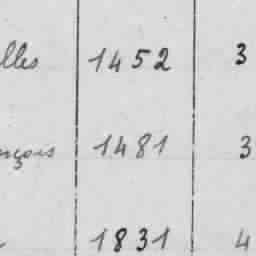 lles 1452 3
nçois 1481 3
1831 4